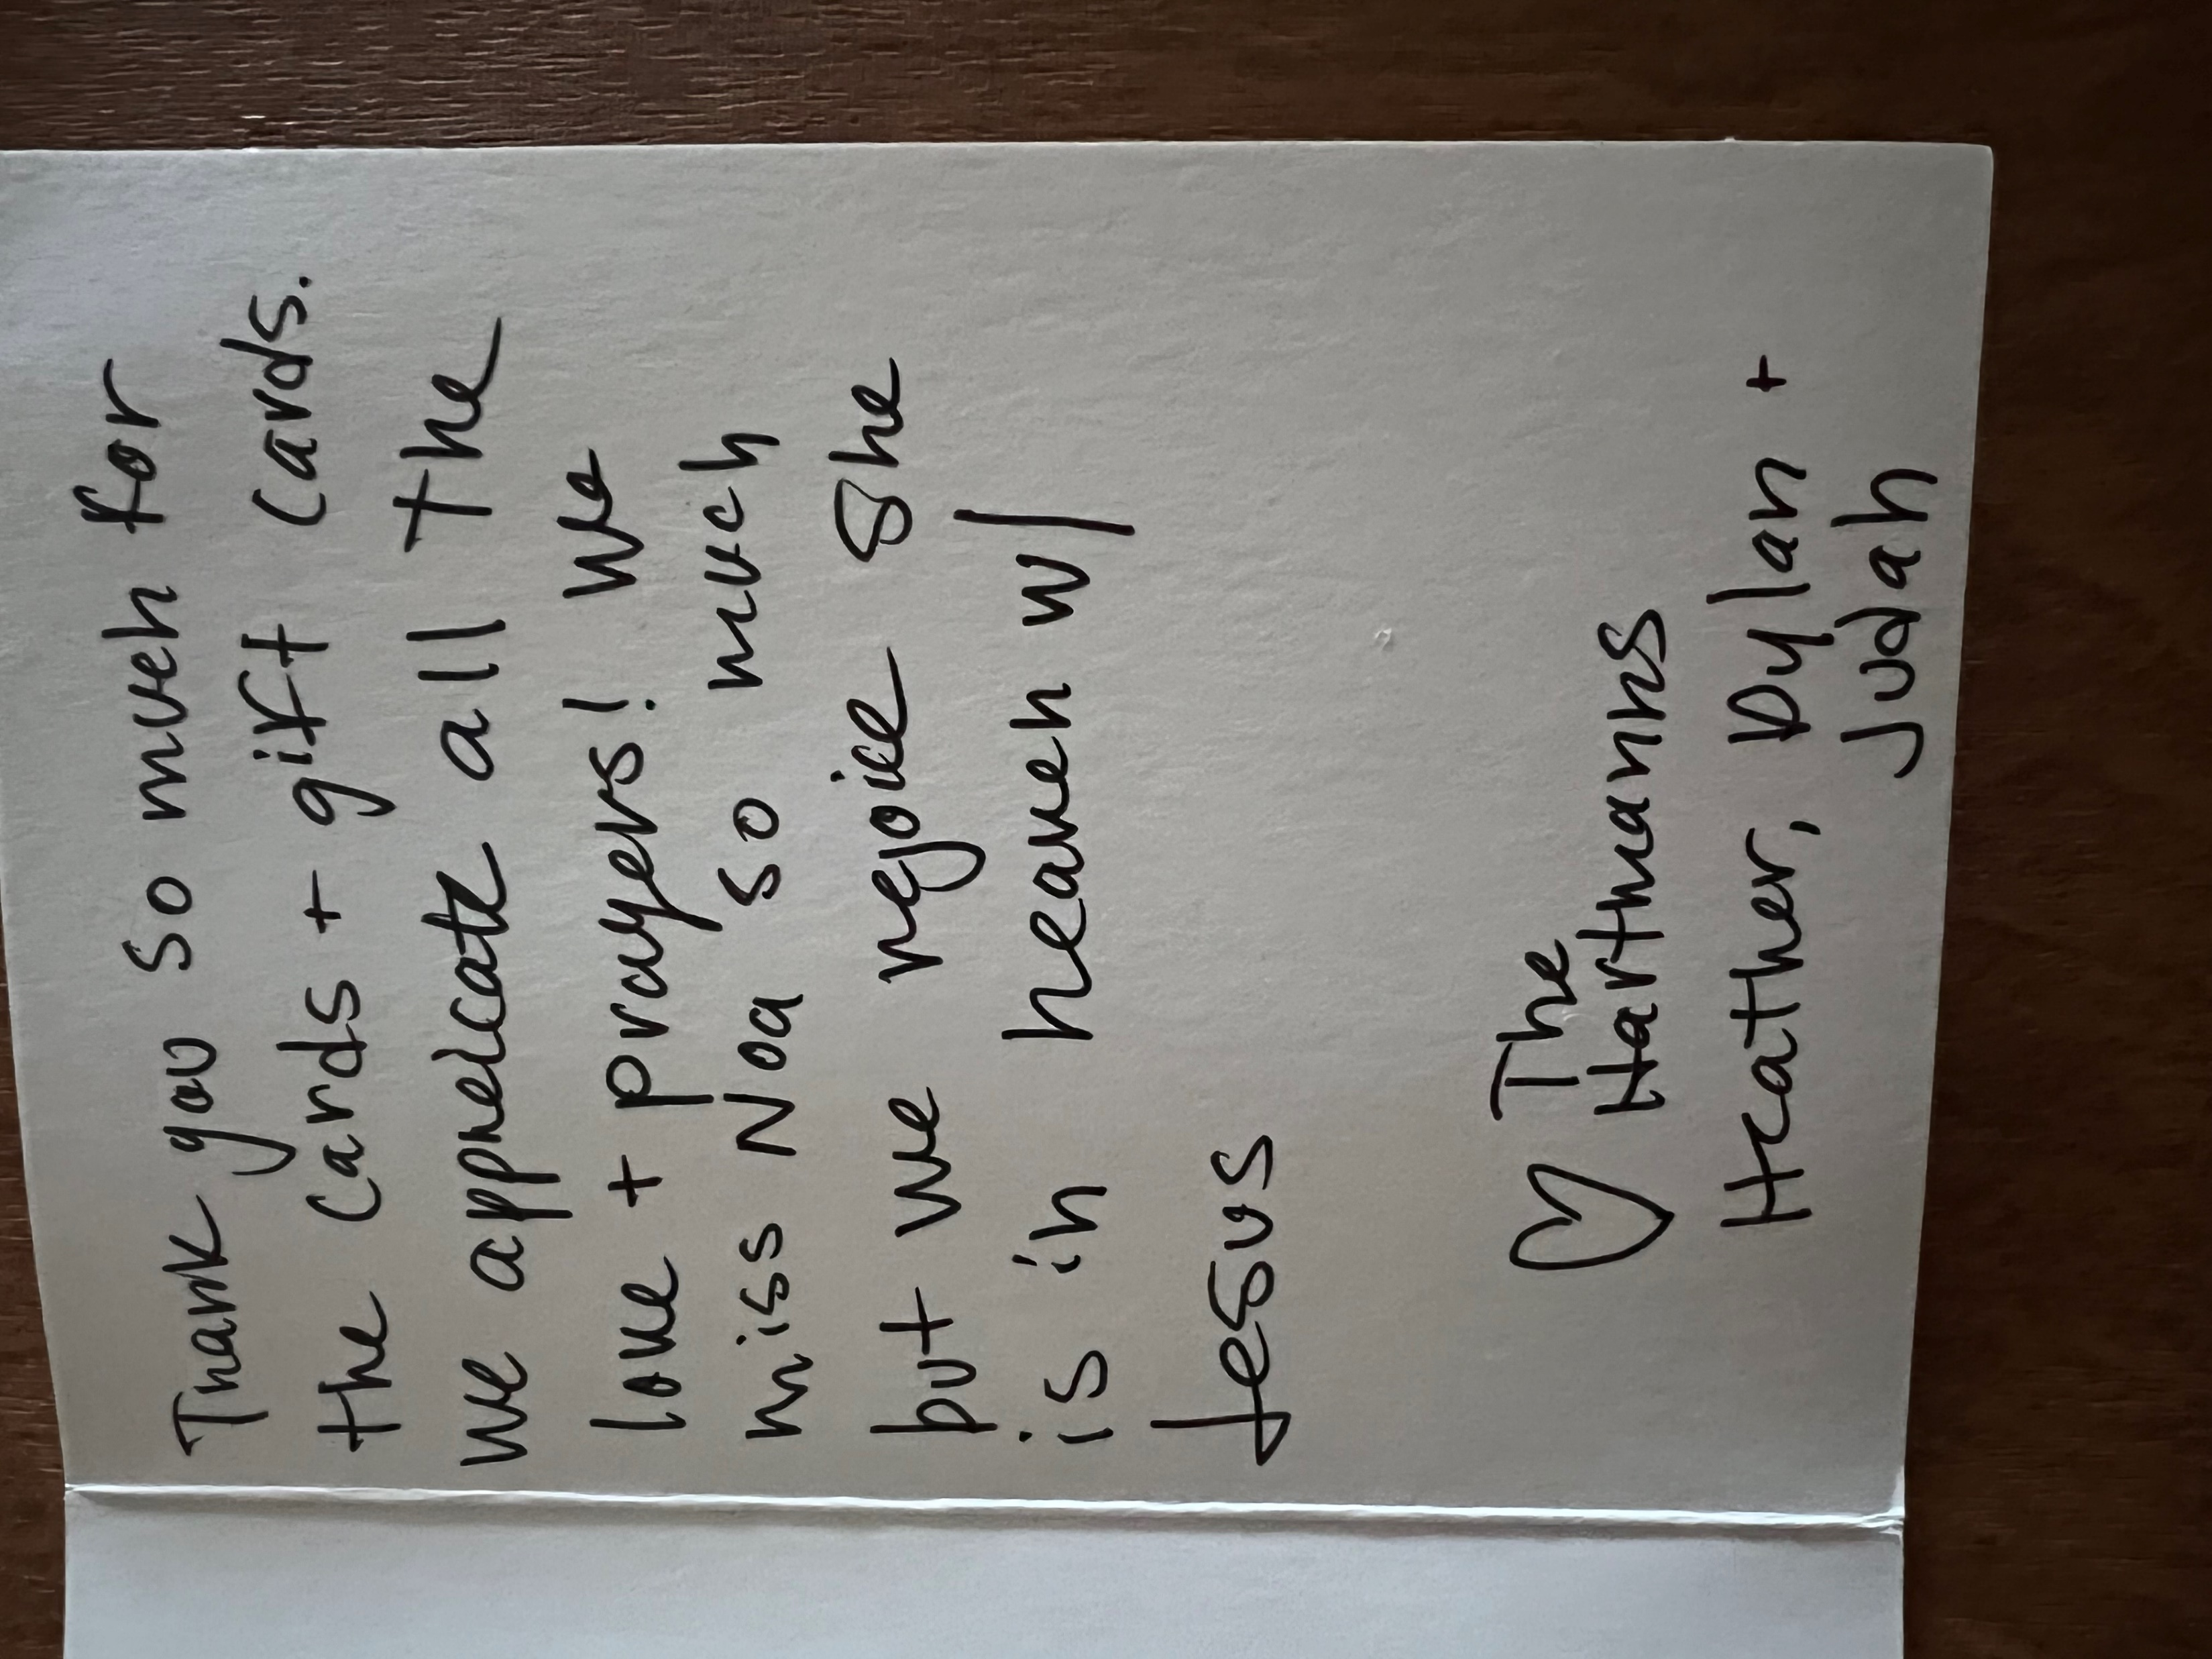 Thank you so much for
the cards + gift cards.
we appreicate all the
love + prayers! We
miss Noa so much
but we rejoice she
is in heaven w/
Jesus
♡ The
Hartmanns
Heather, Dylan +
Judah